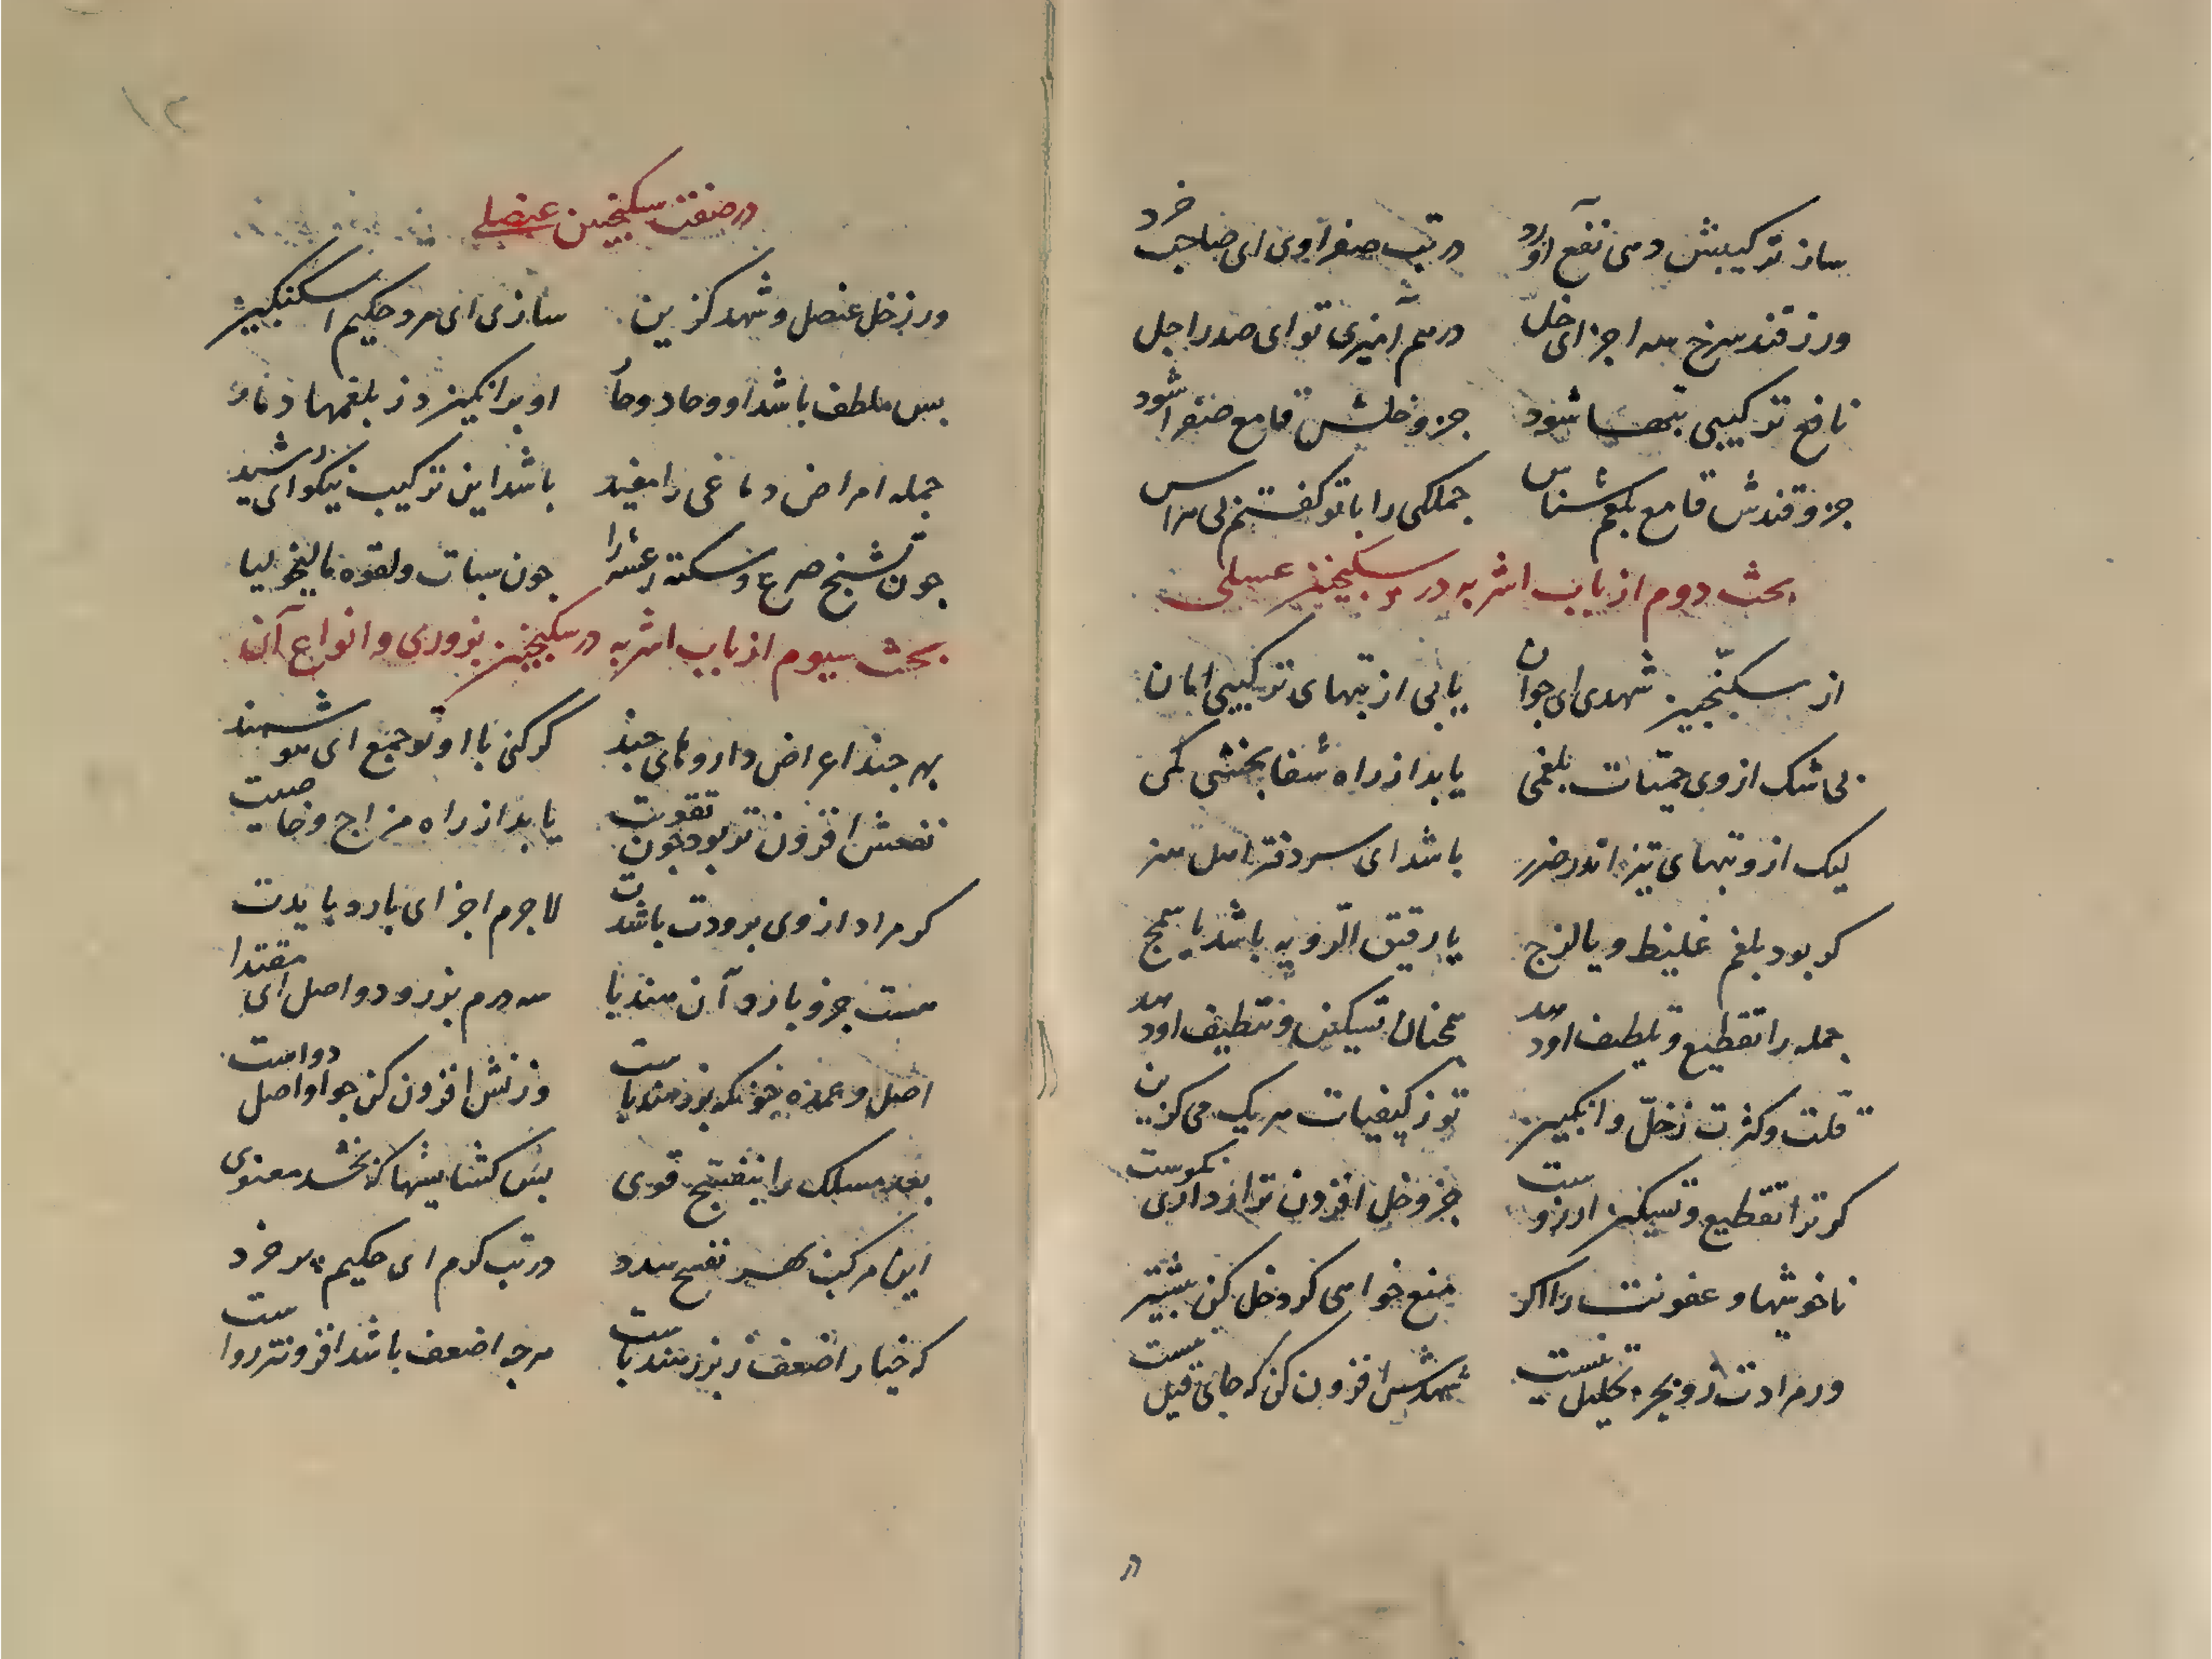 ساز ترکیبش دمی نفع آورد در تب صفراوی ای صاحب خرد
ور ز قند سرخ سه اجزای خل درهم آمیزی تو ای صدر اجل
نافع ترکیبی تبها شود جزو خلش قامع صفرا شود
جزو قندش قامع بلغم شناس جملکی را با تو کفتم بی هراس
بحث دوم از باب اشربه در سکنجبین عسلی
از سکنجبین شهدی ای جوان یابی از تبهای ترکیبی امان
بی شک از وی حمیات بلغمی یابد از راه شفا بخشی کمی
لیک از و تبهای تیز اندر ضرر باشد ای سر دفتر اهل هنر
کر بود بلغم غلیظ و یا لزج یا رقیق الرویه باشد یا سمج
جمله را تقطیع و تلطیف او دهد همچنان تسکین و تنظیف او دهد
قلت و کثرت ز خلّ و انکبین تو ز کیفیات هریک می کزین
کر ترا تقطیع و تسکین ارزوست جزو خل افزون تر ار داری نکوست
ناخوشیها و عفونت را اکر منع خواهی کرد خل کن بیشتر
ور مرادت زو بجز تحلیل نیست شهدش افزون کن که جای قیل نیست
۱۲
در صفت سکنجبین عنصلی
ور ز خل عنصل و شهد کزین سازی ای مرد حکیم اسکنکبین
بس ملطف باشد او و حاد و حار او برانکیزد ز بلغمها دمار
جمله امراض دماغی را مفید باشد این ترکیب نیکو ای رشید
چون تشنج صرع و سکته رعشه را جون سبات و لقوه مالیخولیا
بحث سیوم از باب اشربه در سکنجبین بزوری و انواع آن
بهر جند اعراض داروهای جند کر کنی با او تو جمع ای هوشمند
نفعش افزون تر بود جون تقویت یابد از راه مزاج و خاصیت
کر مراد از وی برودت باشدت لاجرم اجزای بارد بایدت
هست جزو بارد آن هندبا سه درم بزر و دو اصل ای مقتدا
اصل و عمده خونکه بزر هندباست وزنش افزون کن جو او اصل دواست
بهر مسلک را بتفتیح قوی بس کشایشها که بخشد معنوی
این مرکب بهر تفتیح سدد در تب کرم ای حکیم پر خرد
که خیار اضعف ز بزر هندباست هرجه اضعف باشد افزونتر رواست